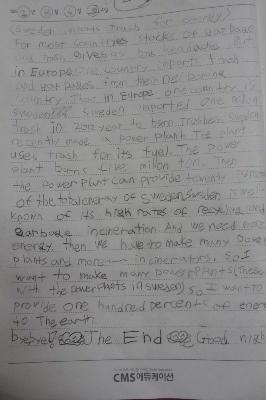 (Sweden imports trash for energy)
For most countries stacks of garbage
and trash gives us big headaches. But
in Europe one country imports trash
and garbages from the neighboring
country. That in Europe one country is
Sweden. Sweden imported one million
trash in 2012 year to burn trashes. Sweden
recently made a power plant. The plant
uses trash for its fuel. The power
plant burns five million ton. Then
the power plant can provide twenty
of the total energy of Sweden. Sweden is well
known of its high rates of recycling and
garbage incineration. And we need more
energy, then we have to make many power
plants and more incinerators. So I
want to make many power plants
with the power plants in Sweden so I want to
provide one hundred percents of energy
to The earth.
bye bye The End Good nigh
CMS에듀케이션